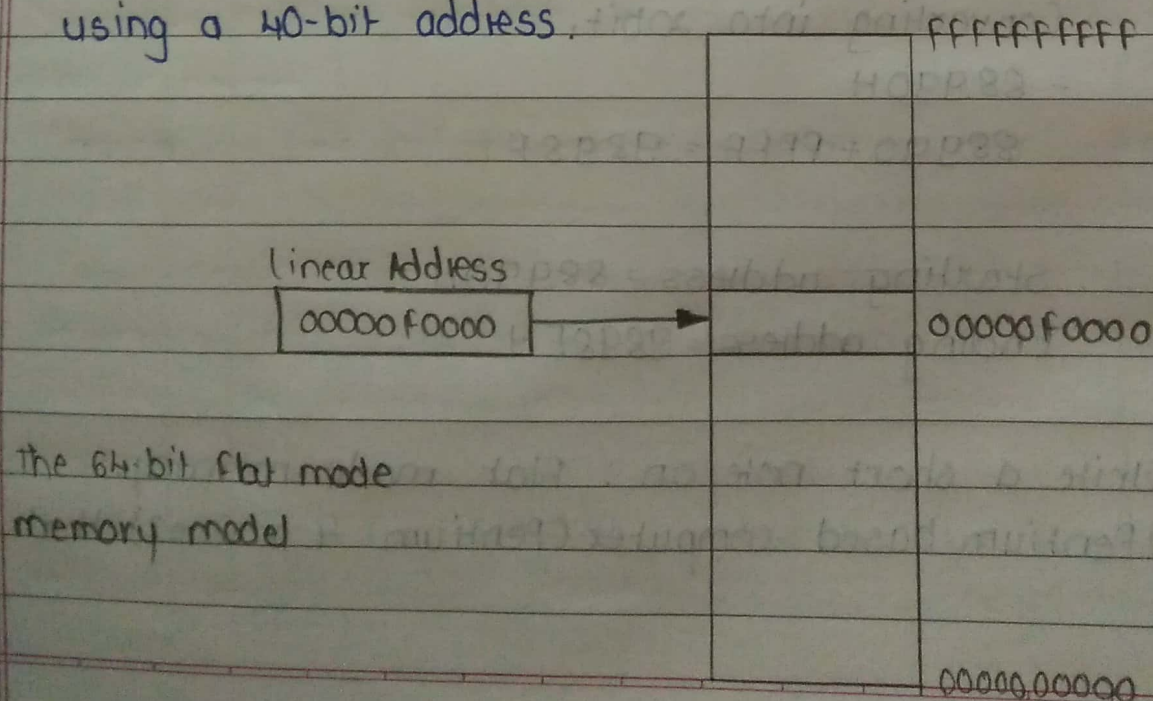 using a 40-bit address.
FFFFFFFFFF
linear Address
00000F0000
00000F0000
the 64-bit flat mode
memory model
0000000000